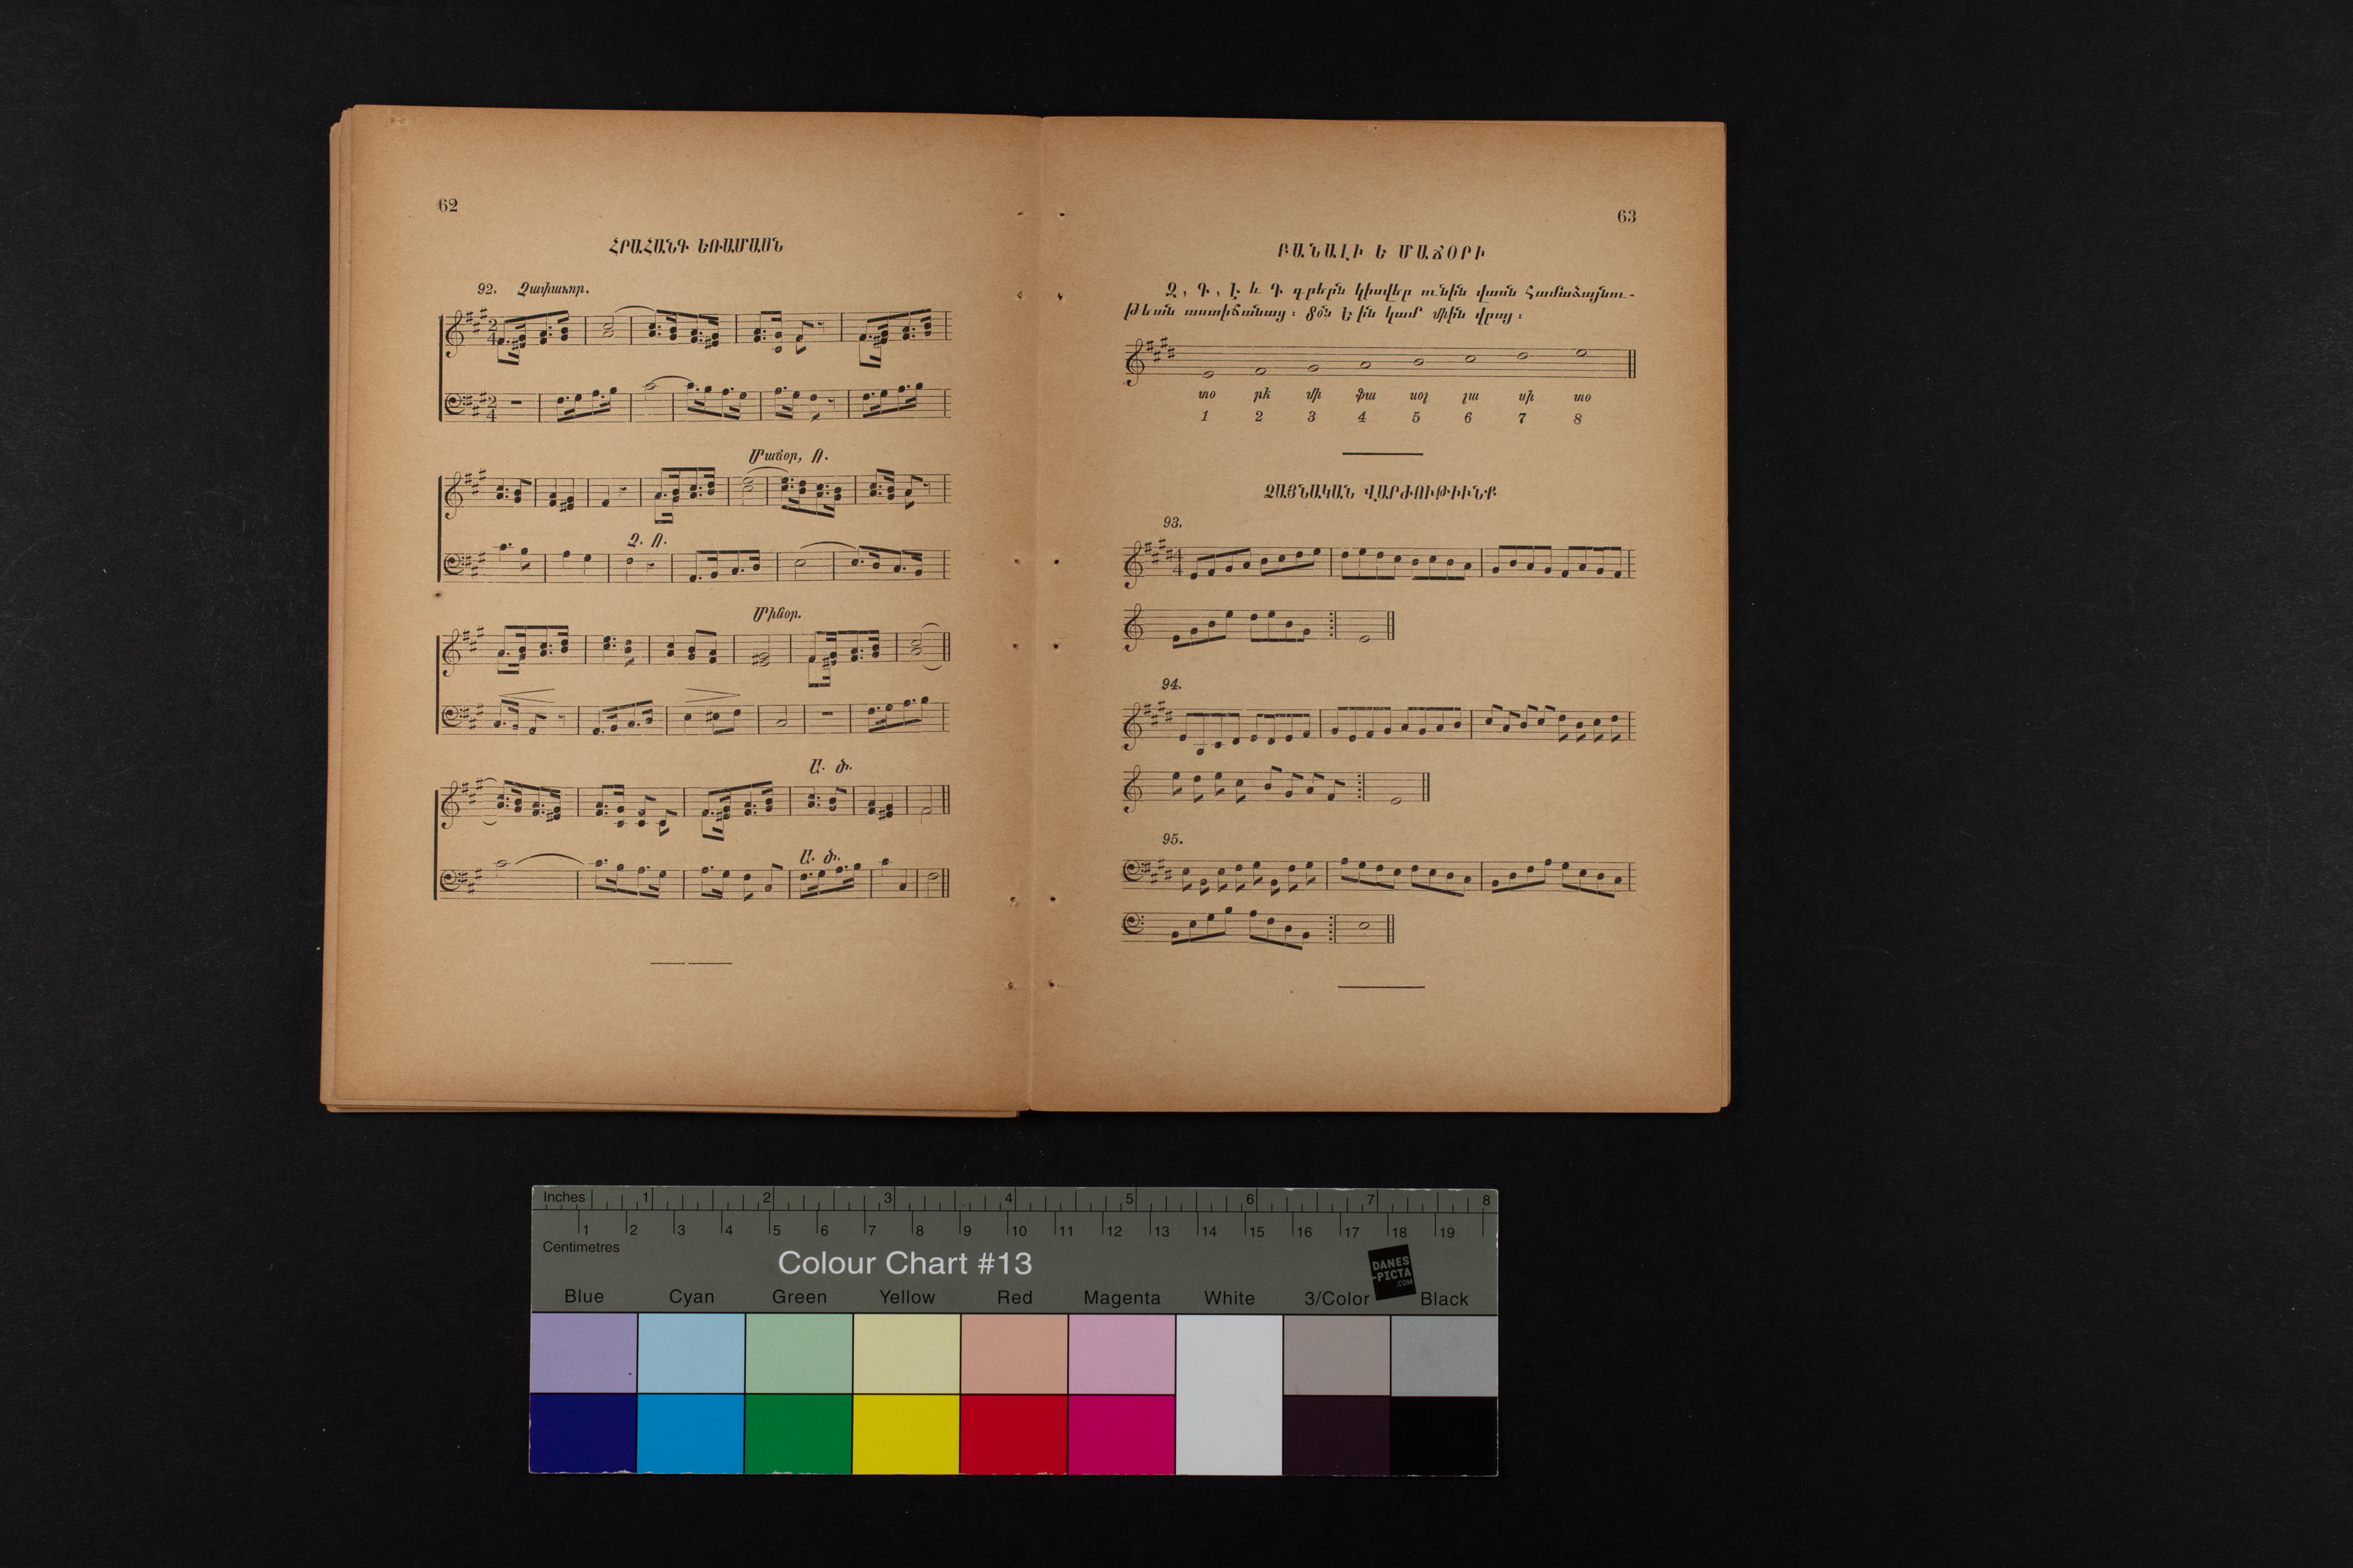 62
ՀՐԱՀԱՆԳ ԵՌԱՄԱՍՆ
92. Չափաւոր.
Մաճօր, Ո.
Զ. Ո.
Մինօր.
Ա. Ծ.
Ա. Ծ.
63
ԲԱՆԱԼԻ Ե ՄԱՃՕՐԻ
Զ, Գ, Է և Դ գրերն կիսվեր ունին վասն համաձայնու-
թեան աստիճանաց։ Տօն Ե ին կամ միին վրայ։
տօ րէ մի ֆա սօլ լա սի տօ
1 2 3 4 5 6 7 8
ՁԱՅՆԱԿԱՆ ՎԱՐԺՈՒԹԻՒՆՔ
93.
94.
95.
Inches 1 2 3 4 5 6 7 8
1 2 3 4 5 6 7 8 9 10 11 12 13 14 15 16 17 18 19
Centimetres
Colour Chart #13
DANES
-PICTA
.COM
Blue Cyan Green Yellow Red Magenta White 3/Color Black